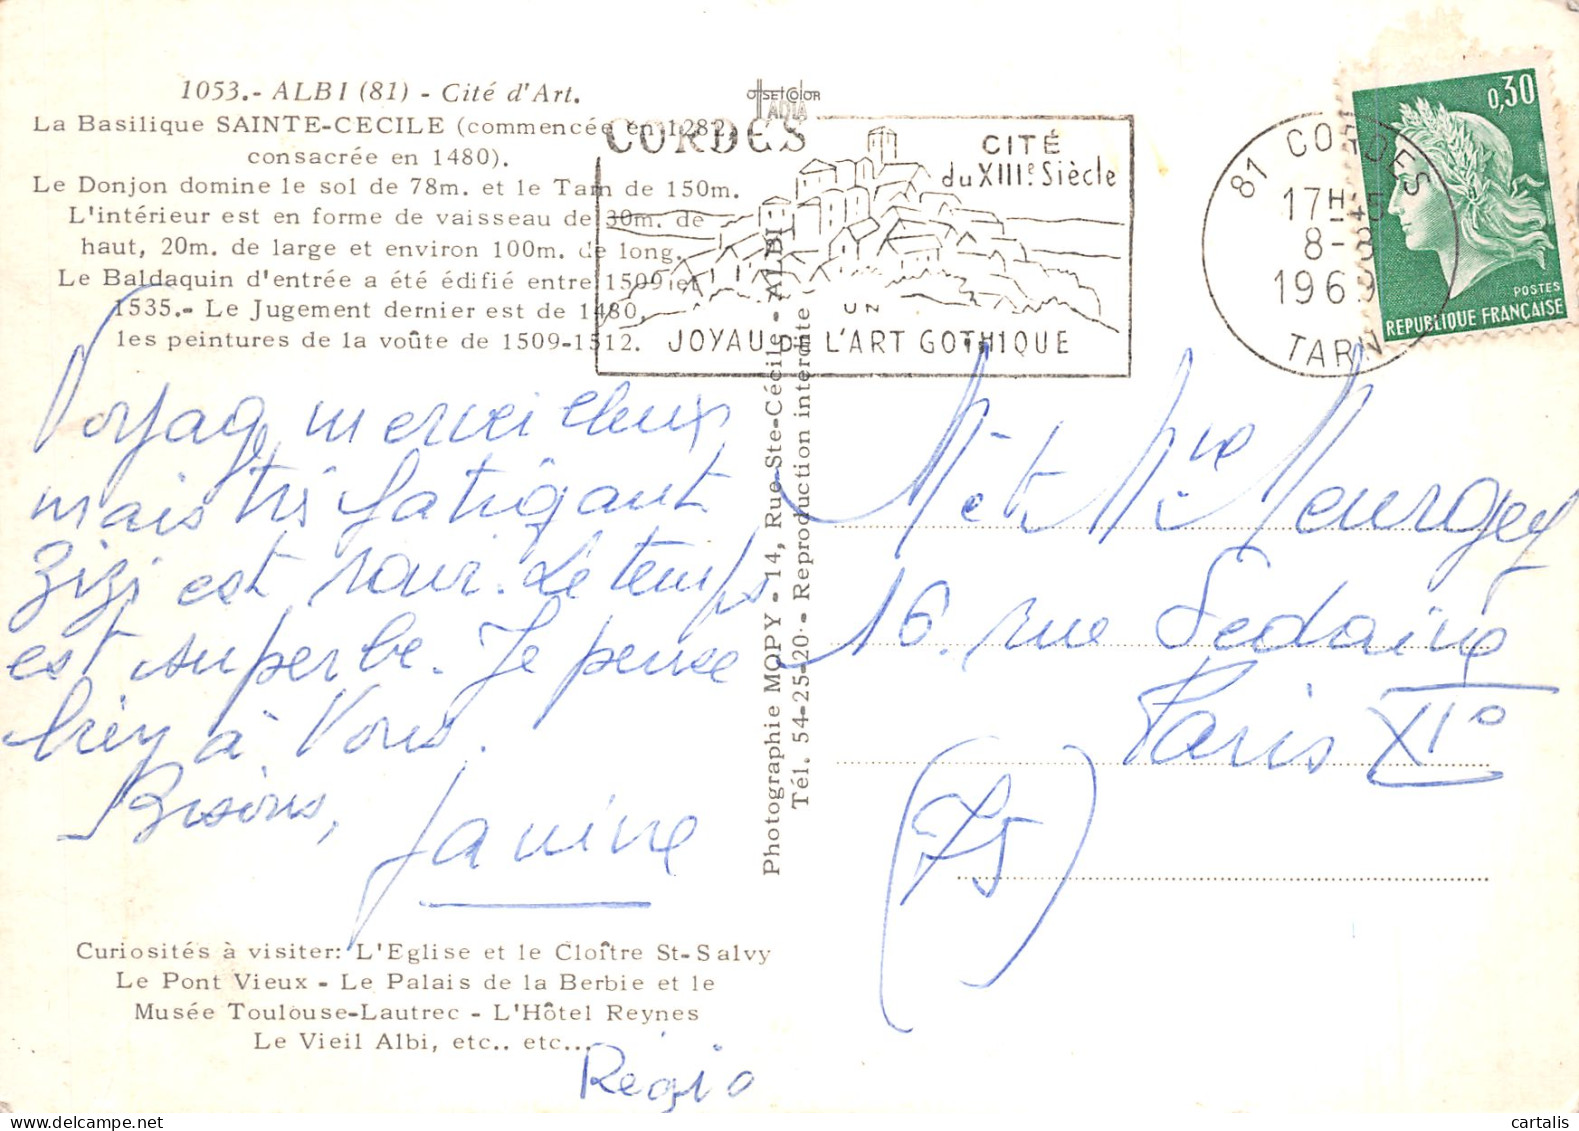 1053.- ALBI (81) - Cité d'Art.
La Basilique SAINTE-CECILE (commencée en 1282,
consacrée en 1480).
Le Donjon domine le sol de 78m. et le Tarn de 150m.
L'intérieur est en forme de vaisseau de 30m. de
haut, 20m. de large et environ 100m. de long.
Le Baldaquin d'entrée a été édifié entre 1509 et
1535.- Le Jugement dernier est de 1480,
les peintures de la voûte de 1509-1512.
Voyage merveilleux
mais très fatigant
Zizi est ravi. Le temps
est superbe. Je pense
bien à Vous.
Bisous,
Janine
Curiosités à visiter: L'Eglise et le Cloître St-Salvy
Le Pont Vieux - Le Palais de la Berbie et le
Musée Toulouse-Lautrec - L'Hôtel Reynes
Le Vieil Albi, etc.. etc...
Régio
OffsetColor
Photographie MOPY - 14, Rue Ste-Cécile - ALBI
Tél. 54-25-20 - Reproduction interdite
CORDES
CITÉ
du XIIIe Siècle
UN
JOYAU DE L'ART GOTHIQUE
81 CORDES
17H45
8-8
1969
TARN
0,30
POSTES
REPUBLIQUE FRANÇAISE
M. et Mme Mourgey
16. rue Sedaine
Paris XIe
(75)
© cartalis
delcampe.net